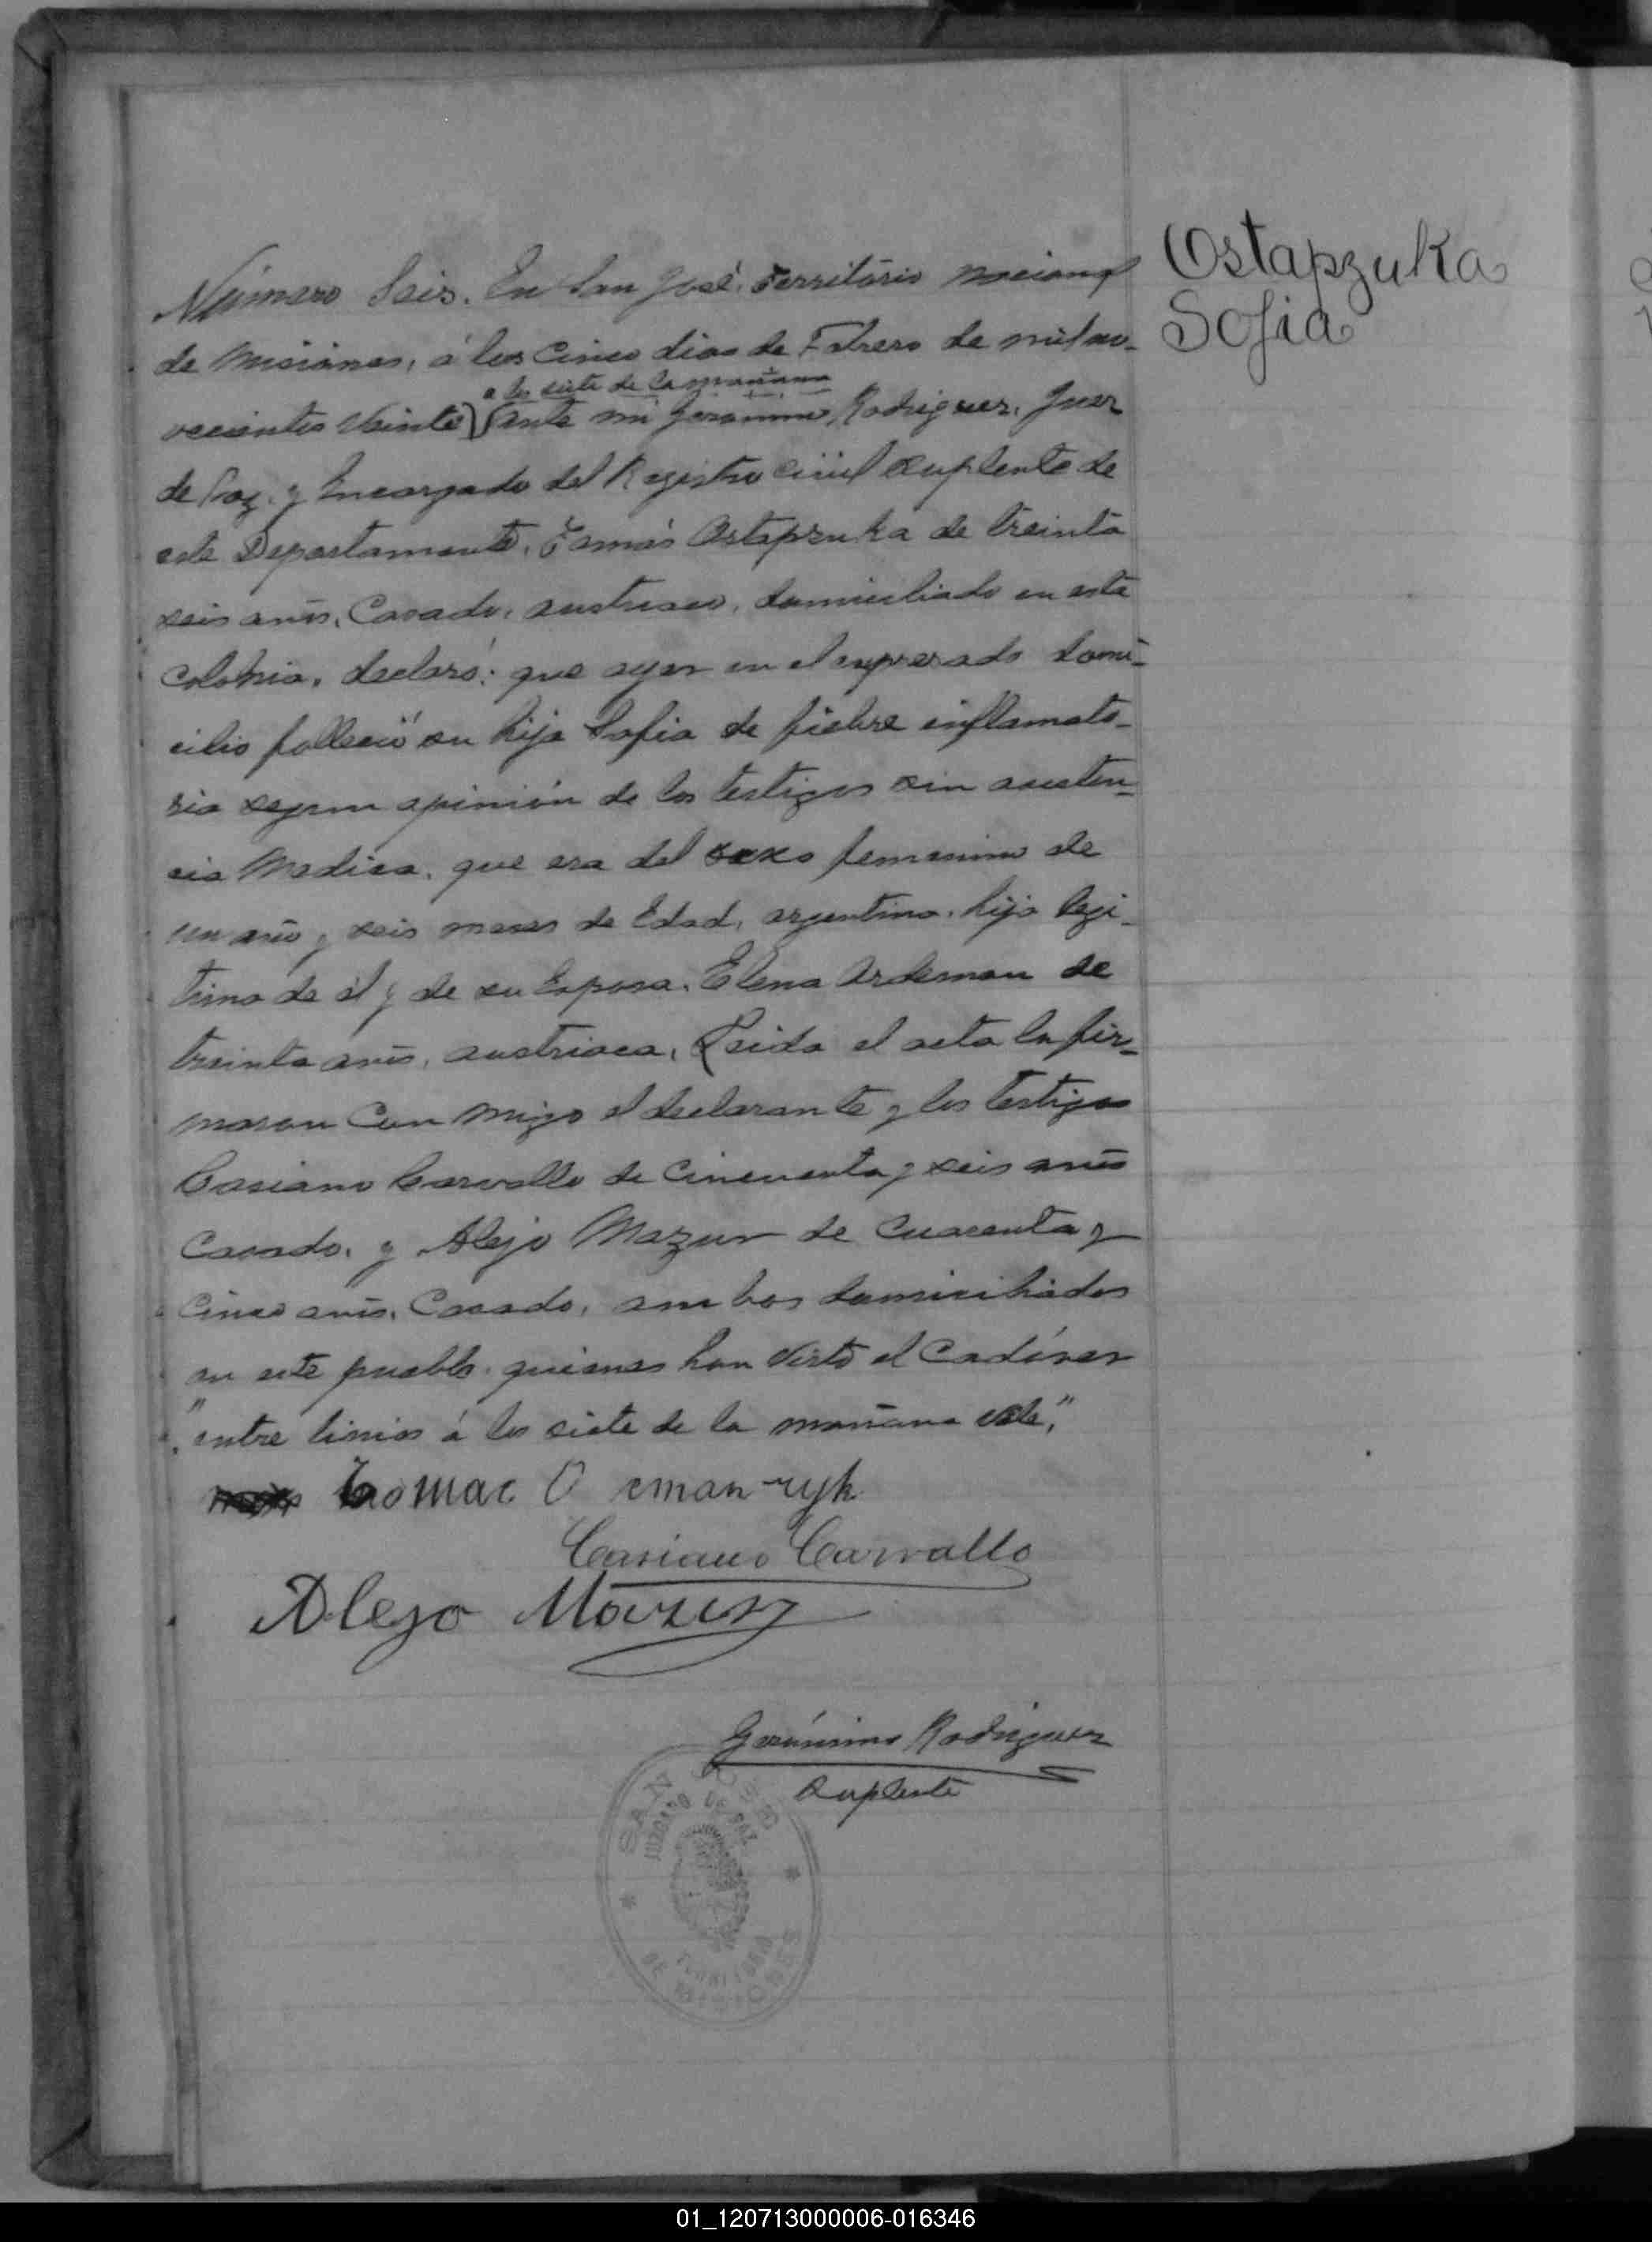 Ostapzuka
Sofia
Número Seis. En San José, Territorio nacional
de Misiones, á los cinco dias de Febrero de mil no-
vecientos veinte) a las siete de la mañana
(ante mi Geronimo Rodriguez, Juez
de Paz y Encargado del Registro Civil Suplente de
este Departamento, Tomás Ostapzuka de treinta
seis años, Casado, austriaco, domiciliado en esta
colonia, declaró: que ayer en el expresado domi-
cilio falleció su hija Sofia de fiebre inflamato-
ria segun opinión de los testigos sin asisten-
cia Medica, que era del sexo femenino de
un año y seis meses de Edad, argentina, hija legi-
tima de él y de su Esposa, Elena de
treinta años, austriaca, Leida el acta la fir-
maron Con migo el declarante y los testigos
Casiano Carvallo de Cincuenta y seis años
Casado, y Alejo Mazur de Cuarenta y
Cinco años, Casado, ambos domiciliados
en este pueblo quienes han visto el Cadáver
"entre linias á las siete de la mañana vale,"
Casiano Carvallo
Alejo Mazur
Gerónimo Rodriguez
Suplente
SAN JOSÉ
JUZGADO DE PAZ
TERRITORIO
DE MISIONES
01_120713000006-016346